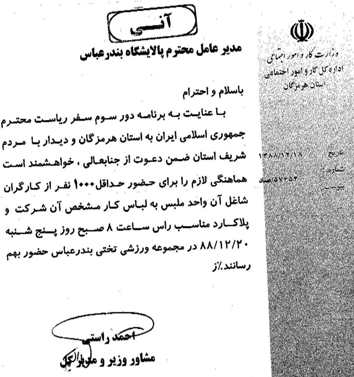 آنـی
مدیر عامل محترم پالایشگاه بندرعباس
وزارت کار و امور اجتماعی
اداره کل کار و امور اجتماعی
استان هرمزگان
تاریخ ۱۳۸۸/۱۲/۱۸
شماره ۵۷۲۵۲
باسلام و احترام
با عنایت به برنامه دور سوم سفر ریاست محترم
جمهوری اسلامی ایران به استان هرمزگان و دیدار با مردم
شریف استان ضمن دعوت از جنابعالی ، خواهشمند است
هماهنگی لازم را برای حضور حداقل ۱۰۰۰ نفر از کارگران
شاغل آن واحد ملبس به لباس کار مشخص آن شرکت و
پلاکارد مناسب راس ساعت ۸ صبح روز پنج شنبه
۸۸/۱۲/۲۰ در مجموعه ورزشی تختی بندرعباس حضور بهم
رسانند.٪ز
احمد راستی
مشاور وزیر و مدیر کل